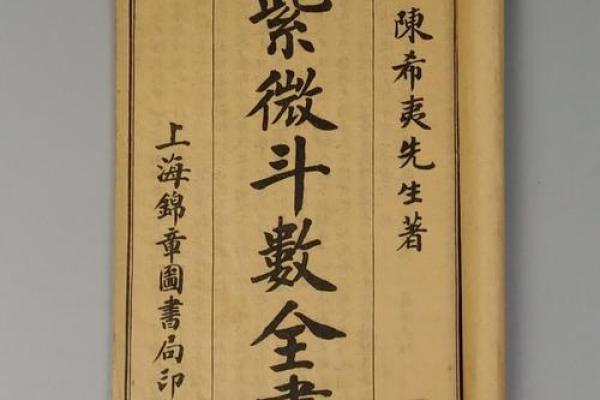 陳希夷先生著
紫微斗數全書
上海錦章圖書局印